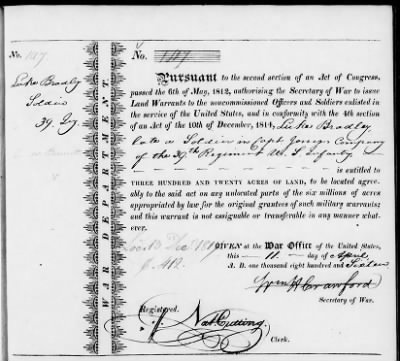 No. 1147
Luke Bradley
Soldier
39. Reg.
WAR DEPARTMENT.
No. 1147
Pursuant to the second section of an Act of Congress,
passed the 6th of May, 1812, authorizing the Secretary of War to issue
Land Warrants to the noncommissioned Officers and Soldiers enlisted in
the service of the United States, and in conformity with the 4th section
of an Act of the 10th of December, 1814, Luke Bradley
late a Soldier in Capt Jones's Company
of the 39th Regiment U. S. Infantry
is entitled to
THREE HUNDRED AND TWENTY ACRES OF LAND, to be located agree-
ably to the said act on any unlocated parts of the six millions of acres
appropriated by law for the original grantees of such military warrants;
and this warrant is not assignable or transferable in any manner what-
ever.
Dec 1819
GIVEN at the War Office of the United States,
412.
this 11. day of April
A. D. one thousand eight hundred and Sixteen
Wm H Crawford
Secretary of War.
Registered.
Nat Cutting.
Clerk.